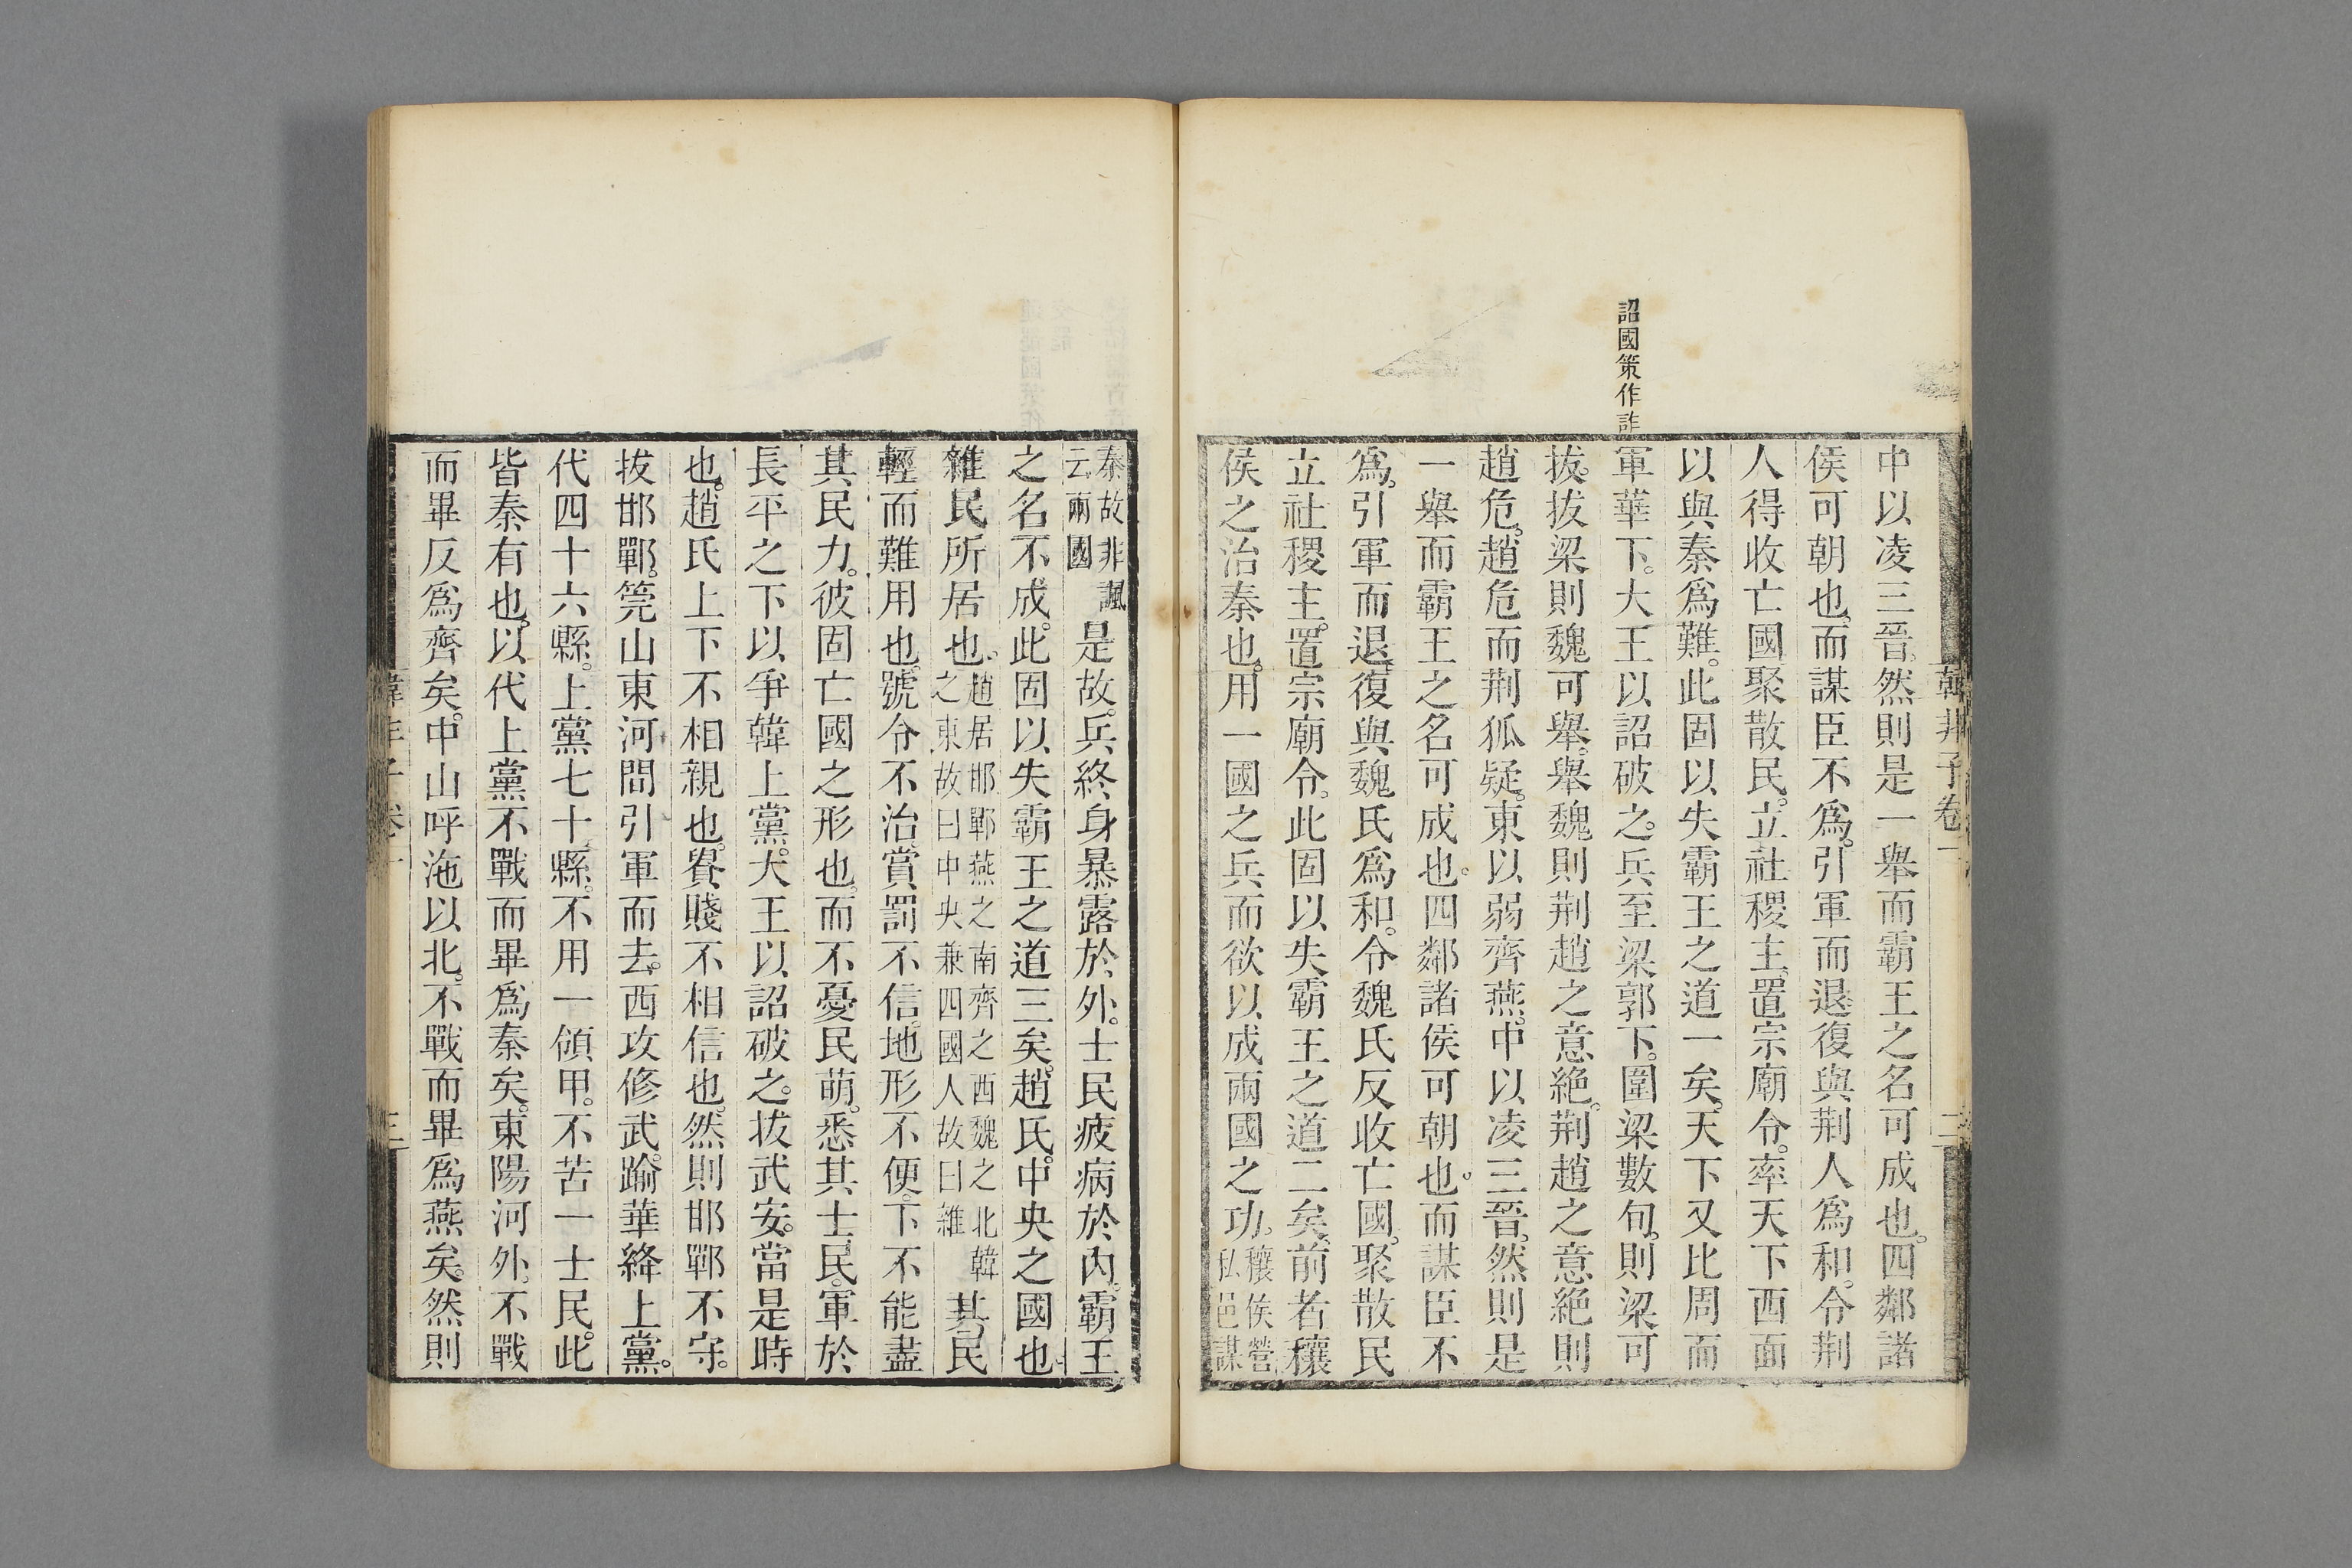 韓非子卷一
二
詔國策作詐
中以凌三晉。然則是一舉而霸王之名可成也。四鄰諸
侯可朝也。而謀臣不爲。引軍而退。復與荆人爲和。令荆
人得收亡國聚散民。立社稷主。置宗廟令。率天下西面
以與秦爲難。此固以失霸王之道一矣。天下又比周而
軍華下。大王以詔破之。兵至梁郭下。圍梁數旬。則梁可
拔。拔梁則魏可舉。舉魏則荆趙之意絶。荆趙之意絶則
趙危。趙危而荆狐疑。東以弱齊燕。中以凌三晉。然則是
一舉而霸王之名可成也。四鄰諸侯可朝也。而謀臣不
爲。引軍而退。復與魏氏爲和。令魏氏反收亡國。聚散民
立社稷主。置宗廟令。此固以失霸王之道二矣。前者穰
侯之治秦也。用一國之兵而欲以成兩國之功。穰侯營私邑謀
秦故非諷云兩國是故。兵終身暴露於外。士民疲病於內。霸王
之名不成。此固以失霸王之道三矣。趙氏。中央之國也
雜民所居也。趙居邯鄲燕之南齊之西魏之北韓之東故曰中央兼四國人故曰雜其民
輕而難用也。號令不治。賞罰不信。地形不便。下不能盡
其民力。彼固亡國之形也。而不憂民萌。悉其士民。軍於
長平之下以爭韓上黨。大王以詔破之。拔武安。當是時
也。趙氏上下不相親也。貴賤不相信也。然則邯鄲不守。
拔邯鄲。筦山東河間引軍而去。西攻修武。踰華絳上黨。
代四十六縣。上黨七十縣。不用一領甲。不苦一士民。此
皆秦有也。以代上黨不戰而畢爲秦矣。東陽河外。不戰
而畢反爲齊矣。中山呼沲以北。不戰而畢爲燕矣。然則
韓非子卷一
三